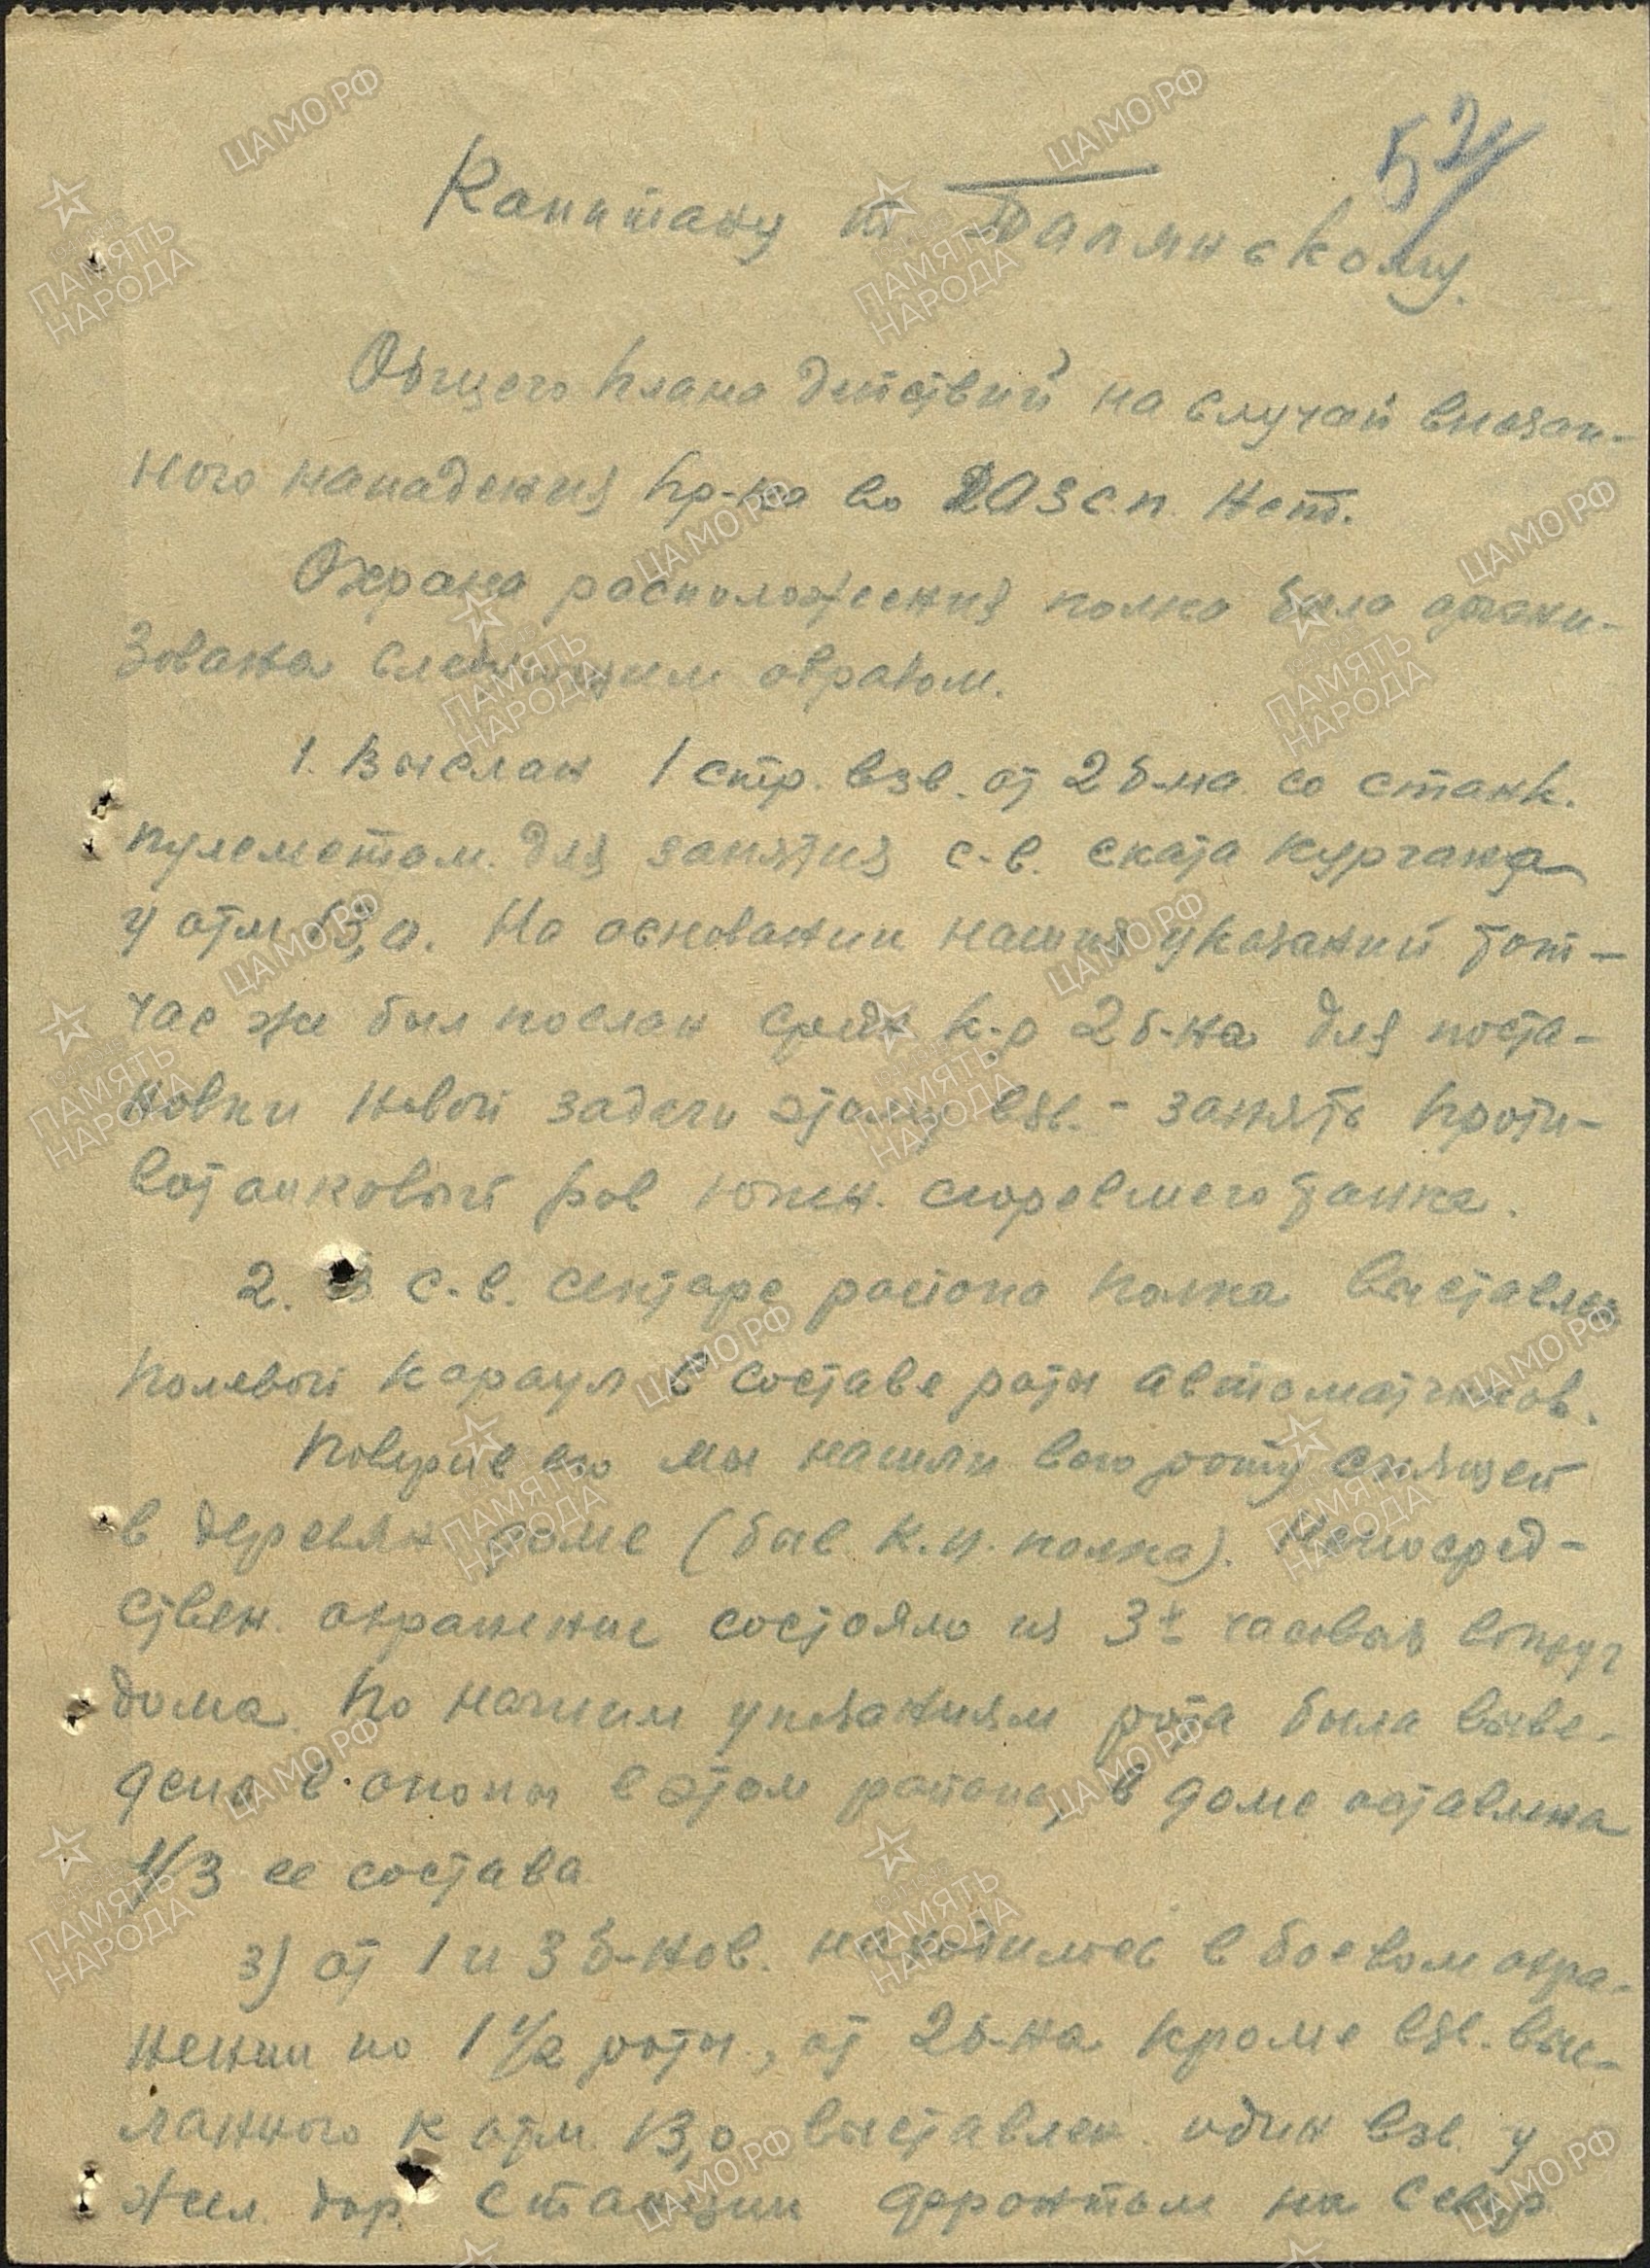 52
Капитану т. Тапянскому.
Общего плана действий на случай внезап-
ного нападения пр-ка во 203 с.п. нет.
Охрана расположения полка была органи-
зована следующим образом.
1. Выслан 1 стр. взв. от 2 б-на со станк.
пулеметом для занятия с.-в. ската кургана
у отм 13,0. На основании наших указаний тот-
час же был послан связн к-р 2 б-на для поста-
новки новой задачи этому взв. - занять проти-
вотанковый ров южн. сгоревшего танка.
2. В с.-в. секторе района полка выставлен
полевой караул в составе роты автоматчиков.
Поверив его мы нашли всю роту спящей
в деревян доме (быв к.п. полка). Непосред-
ствен. охранение состояло из 3х часовых вокруг
дома. По нашим указаниям рота была выве-
дена в окопы в этом районе, в доме оставлена
1/3 ее состава
3) от 1 и 3 б-нов. находились в боевом охра-
нении по 1 1/2 роты, от 2 б-на кроме взв. выс-
ланного к отм. 13,0 выставлен один взв. у
жел. дор. станции фронтом на север
ЦАМО РФ
ПАМЯТЬ НАРОДА